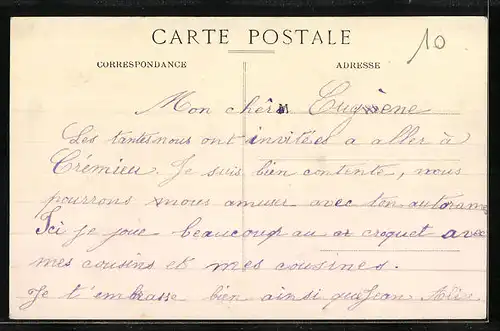 CARTE POSTALE
10
CORRESPONDANCE
ADRESSE
Mon cher Eugène
Les tantes nous ont invitées a aller à
Crémieu. Je suis bien contente, nous
pourrons nous amuser avec ton
Ici je joue beaucoup au croquet avec
mes cousins et mes cousines.
Je t'embrasse bien ainsi que Jean